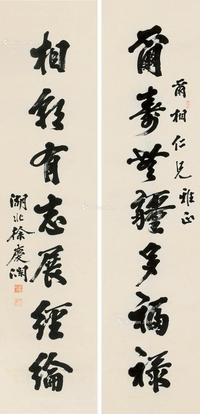 爾相仁兄雅正
爾壽無疆多福祿
相有志展經綸
湖北徐慶瀾